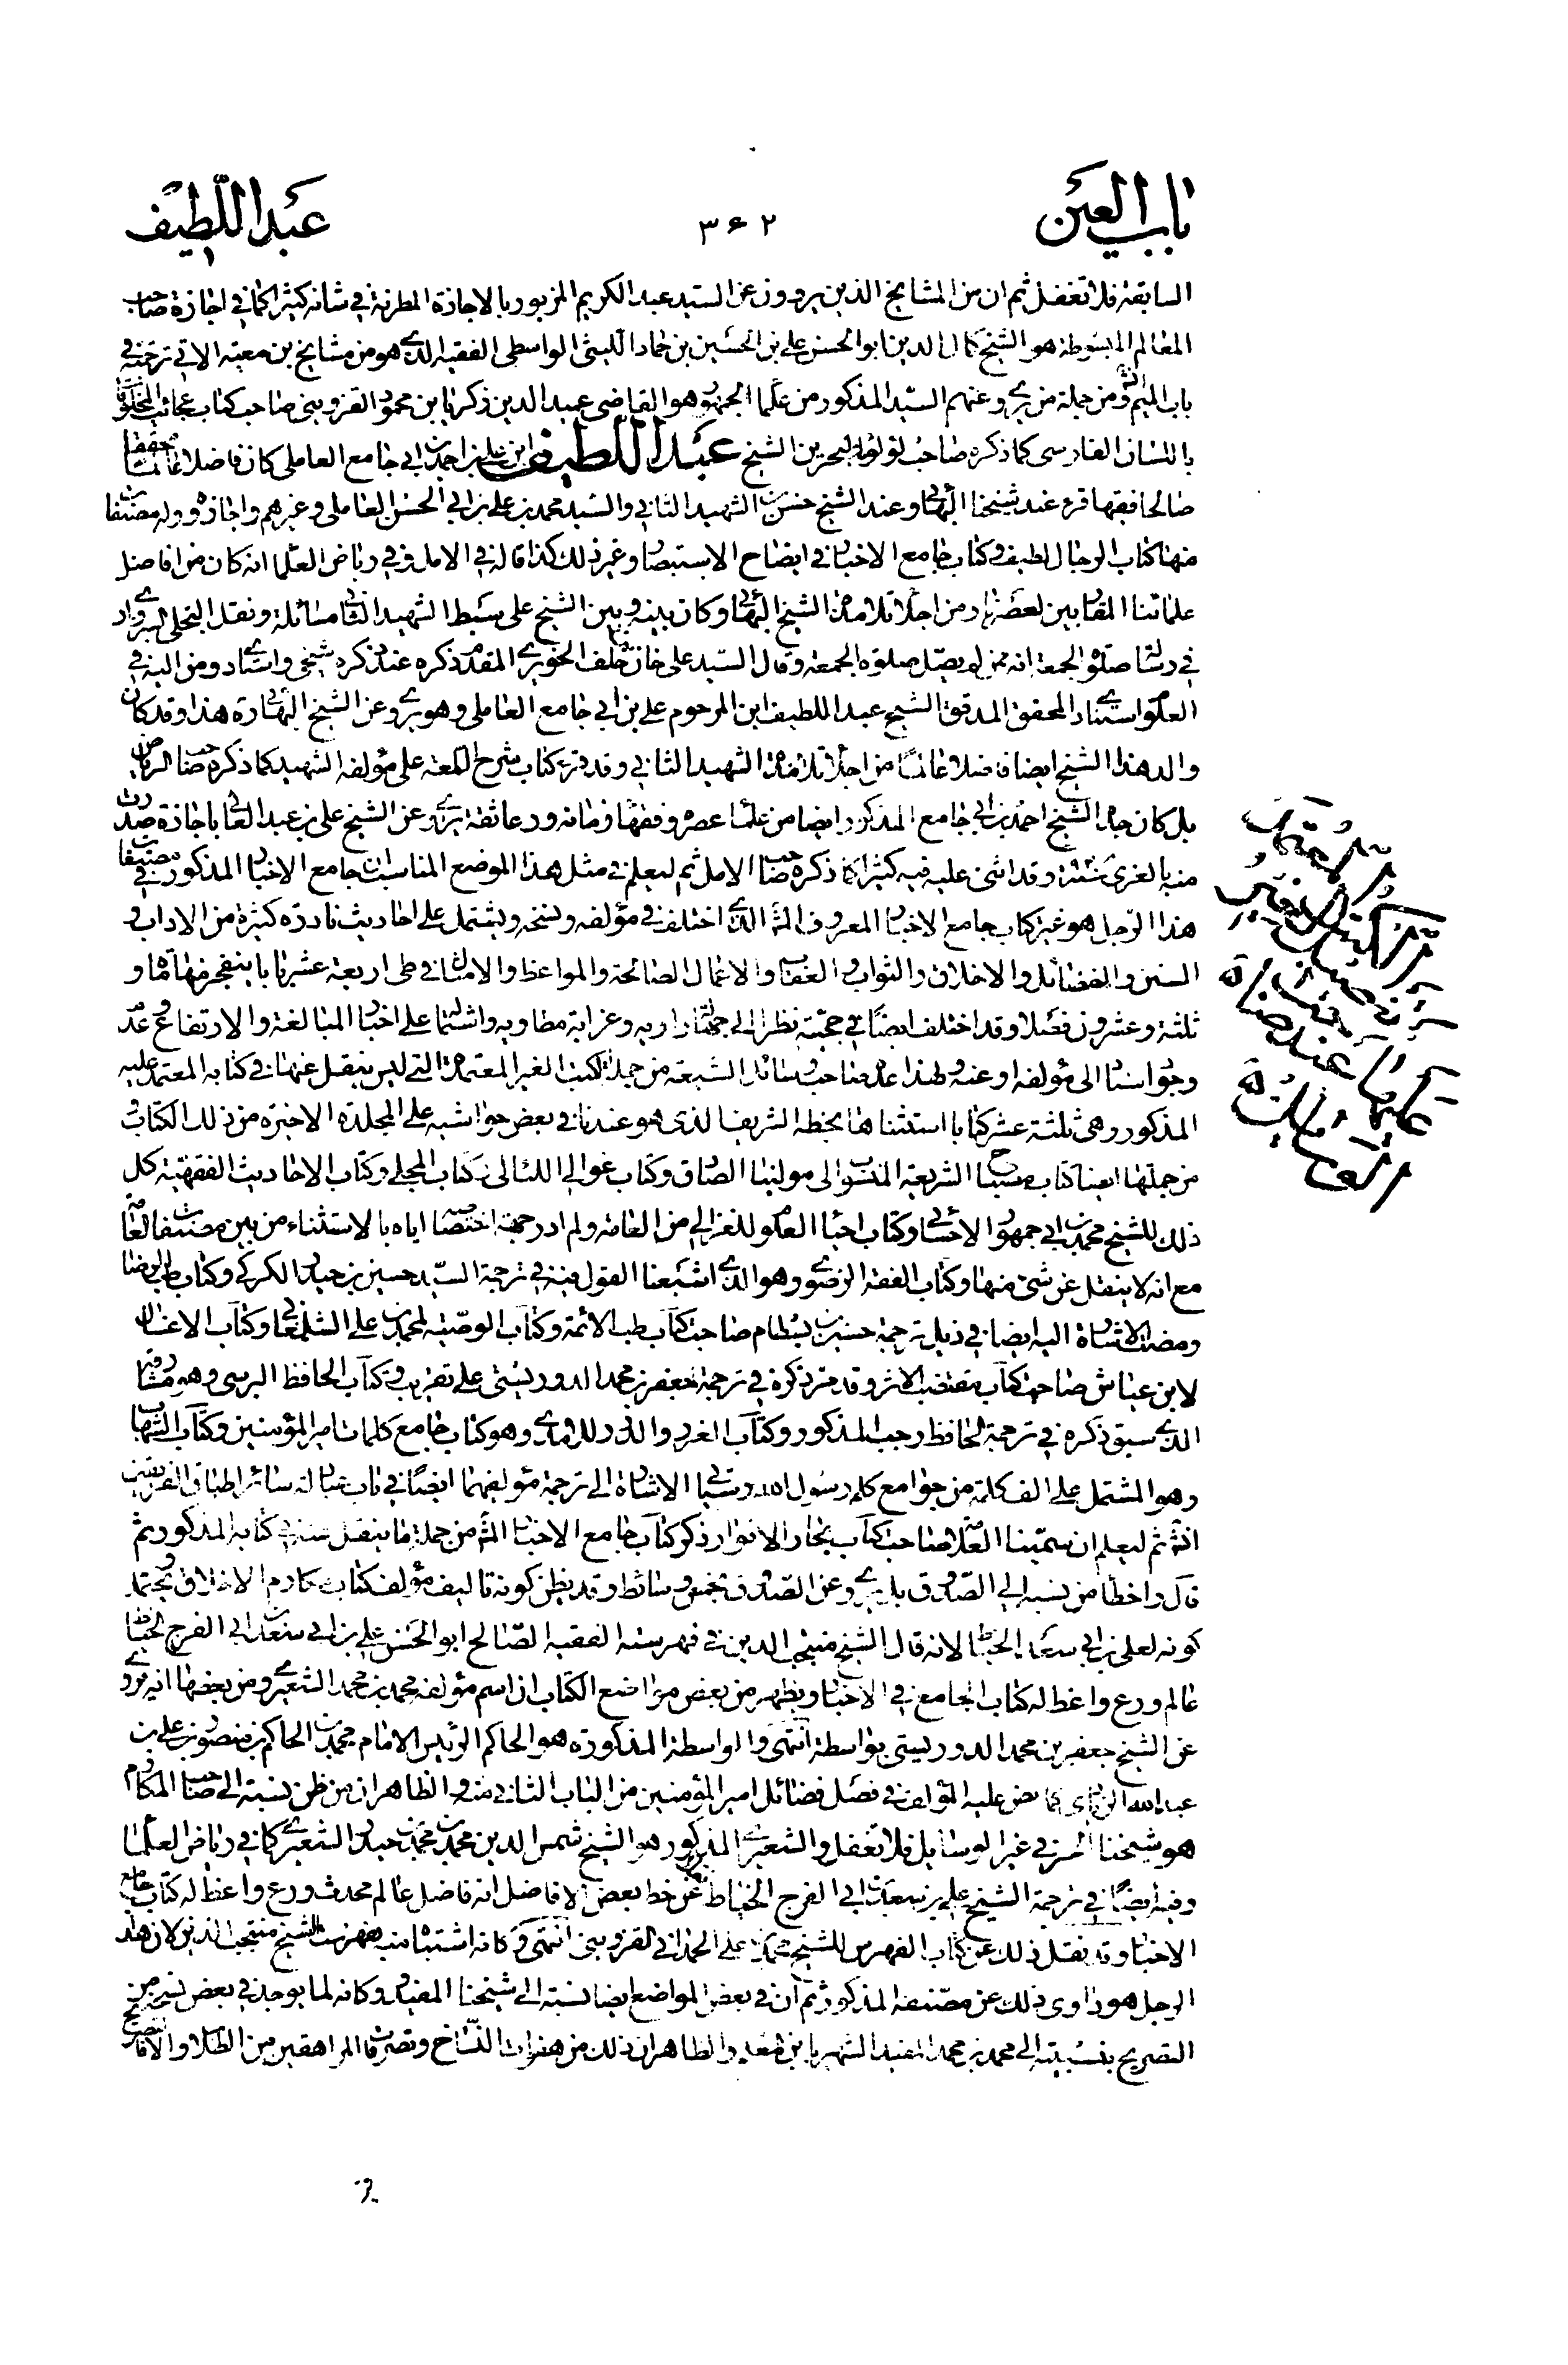 باب العين
٣٦٢
عبد اللطيف
السابقة فلا تغفل ثم ان من المشايخ الذين يروون عن السيد عبد الكريم المزبور بالاجازة المطرية في شانه كثيرا كما في اجازة صاحب
المعالم المبسوطة هو الشيخ كمال الدين ابو الحسن علي بن الحسين بن حماد الليثي الواسطي الفقيه الذي هو من مشايخ بن معية الاتي ترجمته في
باب الميم ومن جملة من يروي عنهم السيد المذكور من علما الجمهور هو القاضي عميد الدين زكريا بن محمود القزويني صاحب كتاب عجائب المخلوقات
باللسان الفارسي كما ذكره صاحب لؤلؤة البحرين الشيخ عبد اللطيف ابن علي بن احمد بن ابي جامع العاملي كان فاضلا عالما محققا
صالحا فقيها قرء عند شيخنا البهائي وعند الشيخ حسن بن الشهيد الثاني والسيد محمد بن علي بن ابي الحسن العاملي وغيرهم واجازوه وله مصنفات
منها كتاب الرجال لطيف وكتاب جامع الاخبار في ايضاح الاستبصار وغير ذلك كذا قاله في الامل وفي رياض العلما انه كان من افاضل
علمائنا المقاربين لعصرنا ومن اجلا تلامذة الشيخ البهائي وكان بينه وبين الشيخ علي سبط الشهيد الثاني مسائلة ونقل
في رسالة صلوة الجمعة انه ممن لم يصل صلوة الجمعة وقال السيد علي خان بن خلف الحويزي المتقدم ذكره عند ذكره شيخي واستادي ومن اليه في
العلوم استنادي المحقق المدقق الشيخ عبد اللطيف ابن المرحوم علي بن ابي جامع العاملي وهو يروي عن الشيخ البهائي ره هذا وقد كان
والد هذا الشيخ ايضا فاضلا عالما من اجلا تلامذة الشهيد الثاني وقد قرء كتاب شرح اللمعة على مؤلفه الشهيد كما ذكره صاحب الرياض
بل كان جده الشيخ احمد بن ابي جامع المذكور ايضا من علما عصره وفقها زمانه ورعا ثقة يروي عن الشيخ علي بن عبد العالي باجازة صدرت
منه بالغري وقد اثنى عليه فيه كثيرا كما ذكره صاحب الامل ثم ليعلم في مثل هذا الموضع المناسب ان جامع الاخبار المذكور في مصنفات
هذا الرجل هو غير كتاب جامع الاخبار المعروف الذي اختلف في مؤلفه ونسخه ويشتمل على احاديث نادرة كثيرة من الاداب و
السنن والفضائل والاخلاق والثواب والعقاب والاعمال الصالحة والمواعظ والامثال في طي اربعة عشر بابا ينفجر منها مائة و
ثلثة وعشرون فصلا وقد اختلف ايضا في حجيته نظرا الى جهالة راويه وغرابة مطاويه واشتماله على اخبار المبالغة والارتفاع وعدم
وجود اسناد الى مؤلفه او عنه ولهذا عده صاحب وسائل الشيعة من جملة الكتب الغير المعتمدة التي ليس ينقل عنها في كتابه المعتمد عليه
المذكور وهي ثلثة عشر كتابا استثناها بخطه الشريف الذي هو عندنا في بعض حواشيه على المجلدة الاخيرة من ذلك الكتاب و
من جملتها ايضا كتاب مصباح الشريعة المنسوب الى مولينا الصادق وكتاب غوالي اللئالي وكتاب المجلي وكتاب الاحاديث الفقهية كل
ذلك للشيخ محمد بن ابي جمهور الاحسائي وكتاب احيا العلوم للغزالي من العامة ولم ادر جهة اختصاصه اياه بالاستثناء من بين مصنفات العامة
مع انه لا ينقل عن شئ منها وكتاب الفقه الرضوي وهو الذي اشبعنا القول فيه في ترجمة السيد حسين بن حيدر الكركي وكتاب طب الرضا
ومضت الاشارة اليه ايضا في ذيل ترجمة حسين بن بسطام صاحب كتاب طب الائمة وكتاب الوصية لمحمد بن علي الشلمغاني وكتاب الاغسال
لابن عياش صاحب كتاب مقتضب الاثر وقد مر ذكره في ترجمة جعفر بن محمد الدوريستي على تقريب وكتاب الحافظ البرسي وهو مشارق
الذي سبق ذكره في ترجمة الحافظ رجب المذكور وكتاب الغرر والدرر للامدي وهو كتاب جامع كلمات امير المؤمنين وكتاب الشهاب
وهو المشتمل على الف كلمة من جوامع كلم رسول الله وستاتي الاشارة الى ترجمة مؤلفهما ايضا في باب سائر اطباق الفريقين
انش ثم ليعلم ان سمينا العلامة صاحب كتاب بحار الانوار ذكر كتاب جامع الاخبار من جملة ما ينقل عنه في كتابه المذكور ثم
قال واخطا من نسبه الى الصدوق بل يروي عن الصدوق بخمس وسائط وقد يظن كونه تاليف مؤلف كتاب مكارم الاخلاق ويحتمل
كونه لعلي بن ابي سعد الخياط لانه قال الشيخ منتجب الدين في فهرسته الفقيه الصالح ابو الحسن علي بن ابي سعد بن ابي الفرج الخياط
عالم ورع واعظ له كتاب الجامع في الاخبار ويظهر من بعض مواضع الكتاب ان اسم مؤلفه محمد بن محمد الشعيري ومن بعضها انه يروي
عن الشيخ جعفر بن محمد الدوريستي بواسطة انتهى والواسطة المذكورة هو الحاكم الرئيس الامام محمد بن الحاكم بن منصور بن علي بن
عبد الله كما نص عليه المؤلف في فصل فضائل امير المؤمنين من الباب الثاني منه والظاهر ان من ظن نسبته الى صاحب المكارم
هو شيخنا الحر في غير الوسائل فلا تغفل والشعيري المذكور هو الشيخ شمس الدين محمد بن محمد بن حيدر الشعيري كما في رياض العلما
وفيه ايضا في ترجمة الشيخ علي بن سعد بن ابي الفرج الخياط عن خط بعض الافاضل انه فاضل عالم محدث ورع واعظ له كتاب جامع
الاخبار وقد نقل ذلك عن كتاب الفهرس للشيخ محمد بن علي الحمداني القزويني انتهى وكانه اشتباه منه بفهرست الشيخ منتجب الدين لان هذا
الرجل هو راوي ذلك عن مصنفه المذكور ثم ان في بعض المواضع ايضا نسبته الى شيخنا المفيد وكانه لما يوجد في بعض نسخه من
التصريح بنسبته الى محمد بن محمد المفيد الشهير بابن المعلم والظاهر ان ذلك من هفوات النساخ وتصرفات المراهقين من الطلاب والافاضل